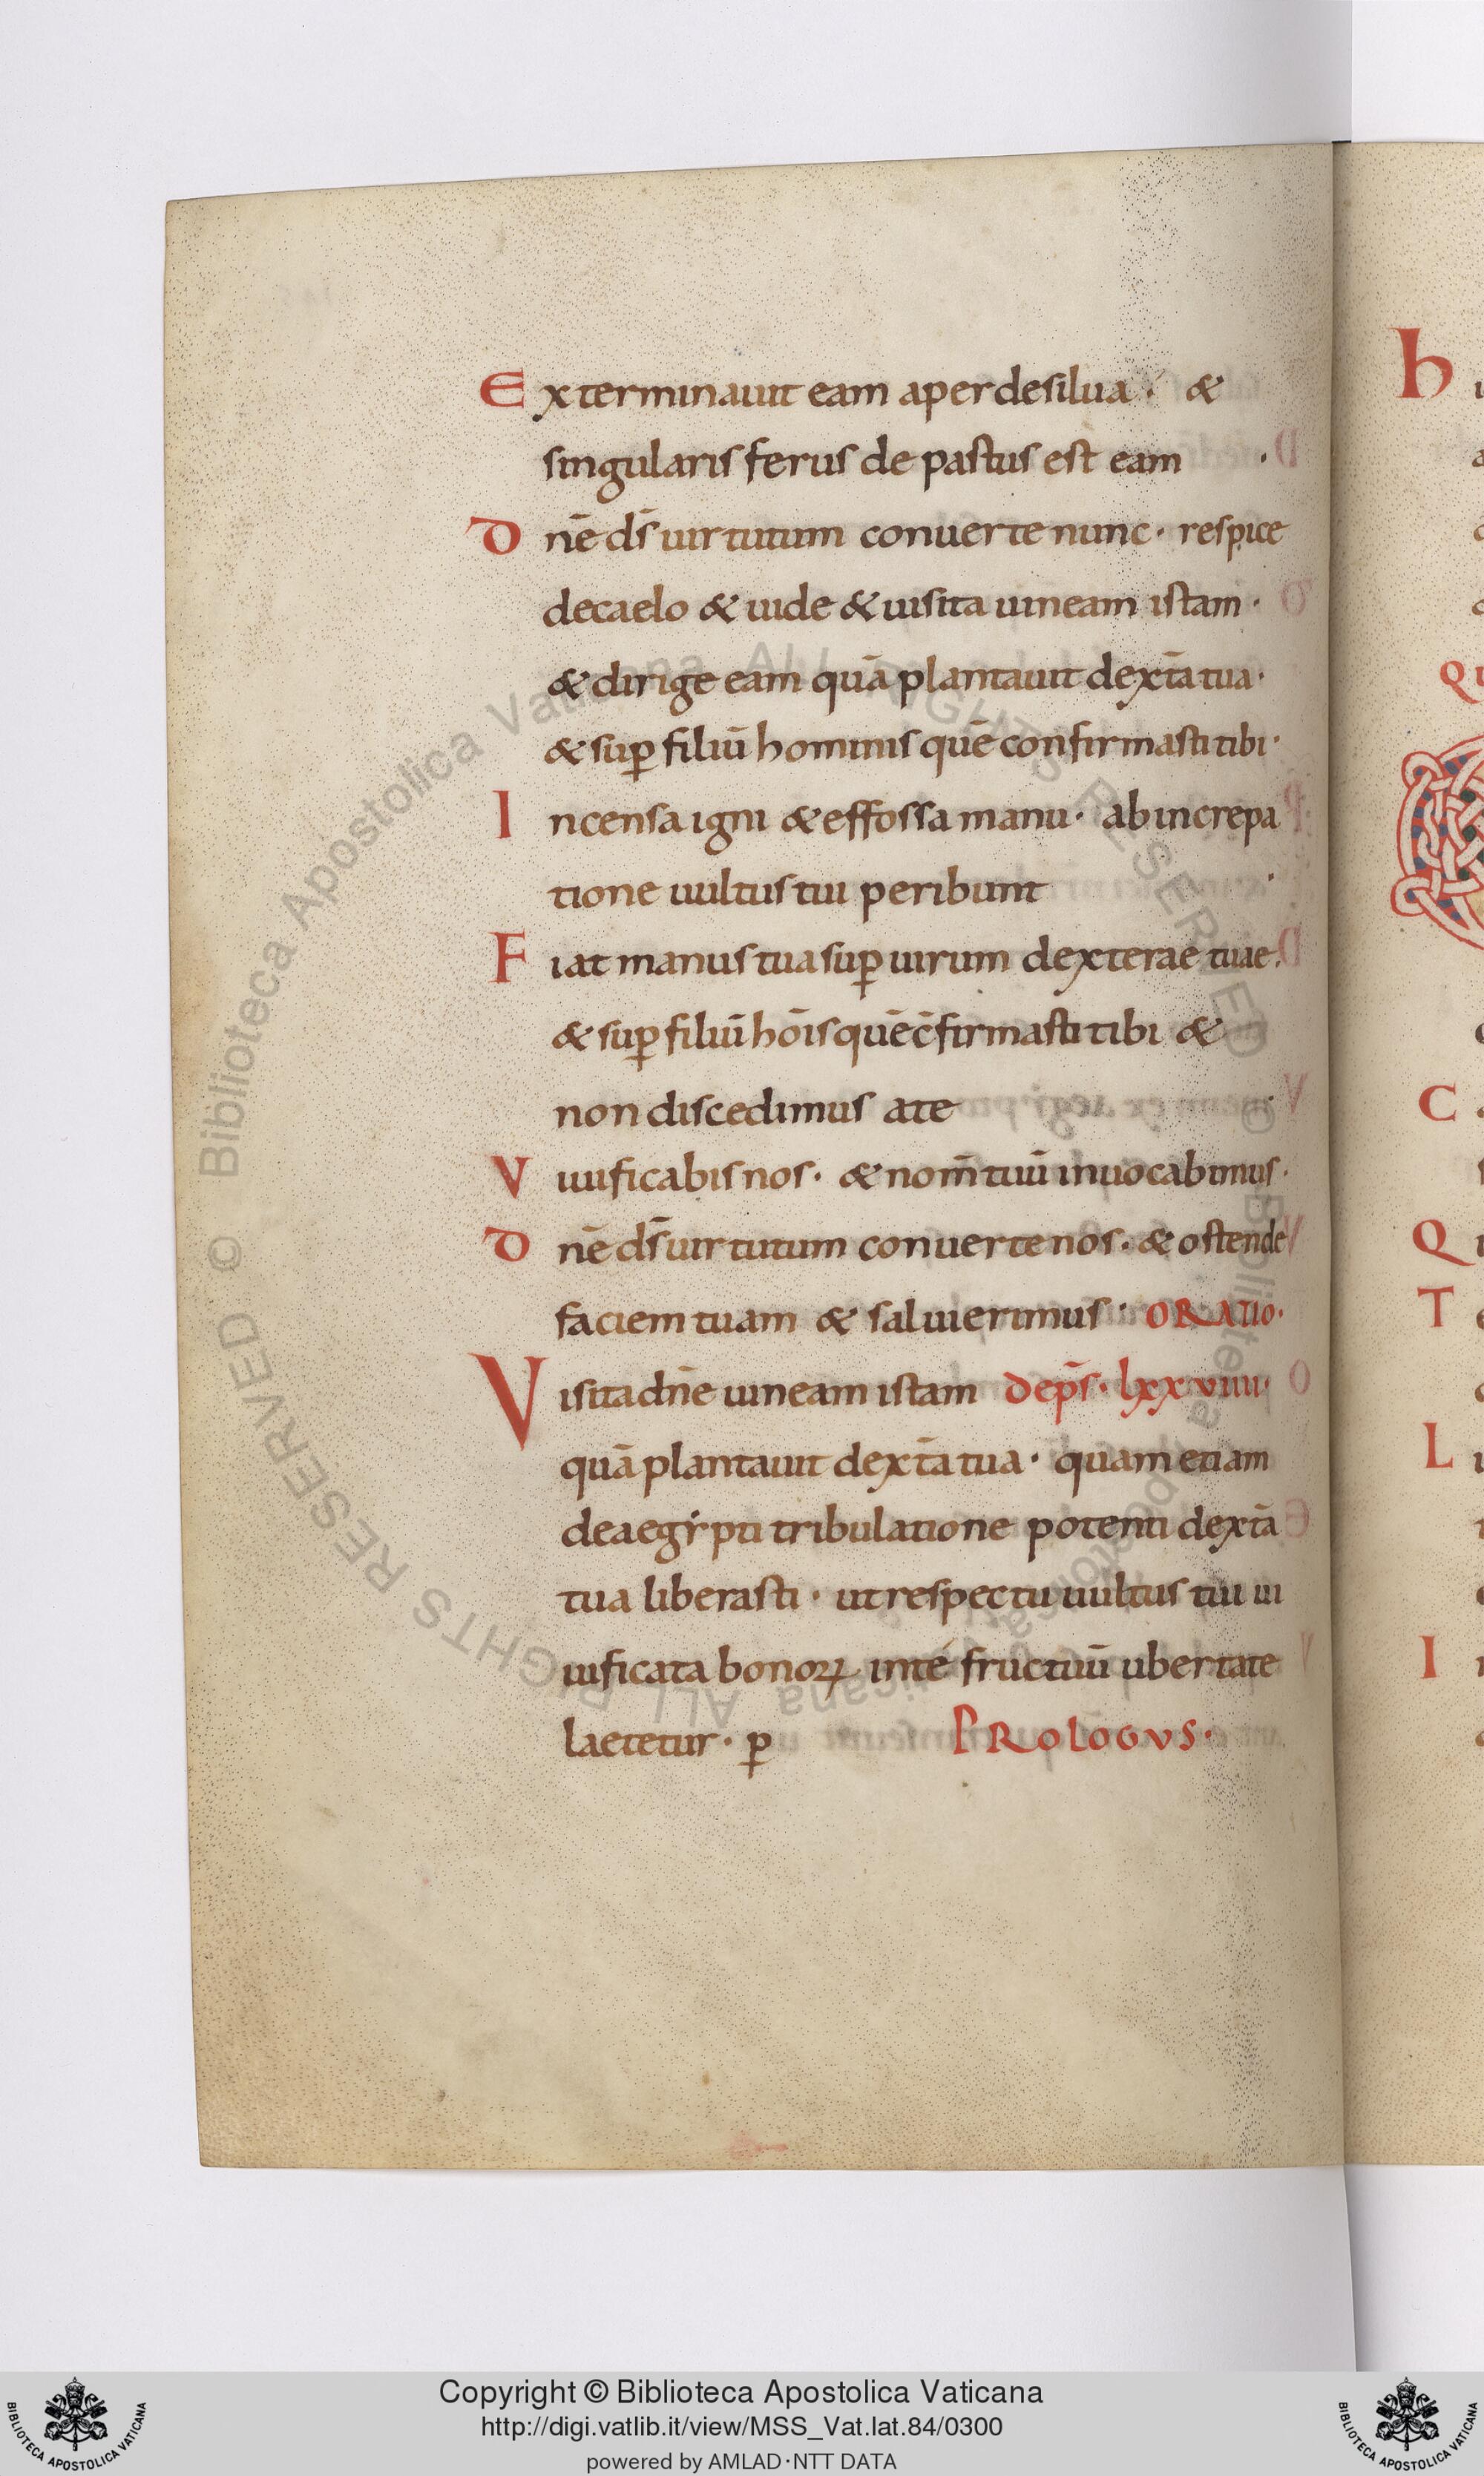 Exterminauit eam aper desilua· &
singularis ferus de pastus est eam ·
Dnē ds̄ uirtutum conuerte nunc· respice
decaelo & uide & uisita uineam istam·
& dirige eam quā plantauit dext̄a tua·
& suꝑ filiū hominis quē confirmasti tibi·
Incensa igni & effossa manu· ab increpa
tione uultus tui peribunt ·
Fiat manus tua suꝑ uirum dexterae tuae·
& suꝑ filiū hōis quē c̄firmasti tibi &
non discedimus ate ·
Viuificabis nos· & nom̄ tuū inuocabimus·
Dnē ds̄ uirtutum conuerte nos· & ostende
faciem tuam & salui erimus· ORATIO·
Visita dn̄e uineam istam Dep̄s· lxxviiii·
quā plantauit dext̄a tua· quam etiam
deaegypti tribulatione potenti dext̄a
tua liberasti· ut respectu uultus tui ui
uificata bonoꝝ inté fructuū ubertate
laetetur· ꝑ PROLOGVS·
Copyright © Biblioteca Apostolica Vaticana
http://digi.vatlib.it/view/MSS_Vat.lat.84/0300
powered by AMLAD·NTT DATA
BIBLIOTECA APOSTOLICA VATICANA
BIBLIOTECA APOSTOLICA VATICANA
© Biblioteca Apostolica Vaticana ALL RIGHTS RESERVED © Biblioteca Apostolica Vaticana ALL RIGHTS RESERVED